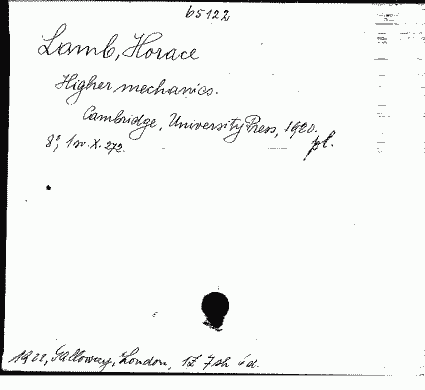 65122
Lamb, Horace
Higher mechanics.
Cambridge, University Press, 1920.
8°, 1 v. X. 272. pl.
Galloway, London, 1£ 7sh d.